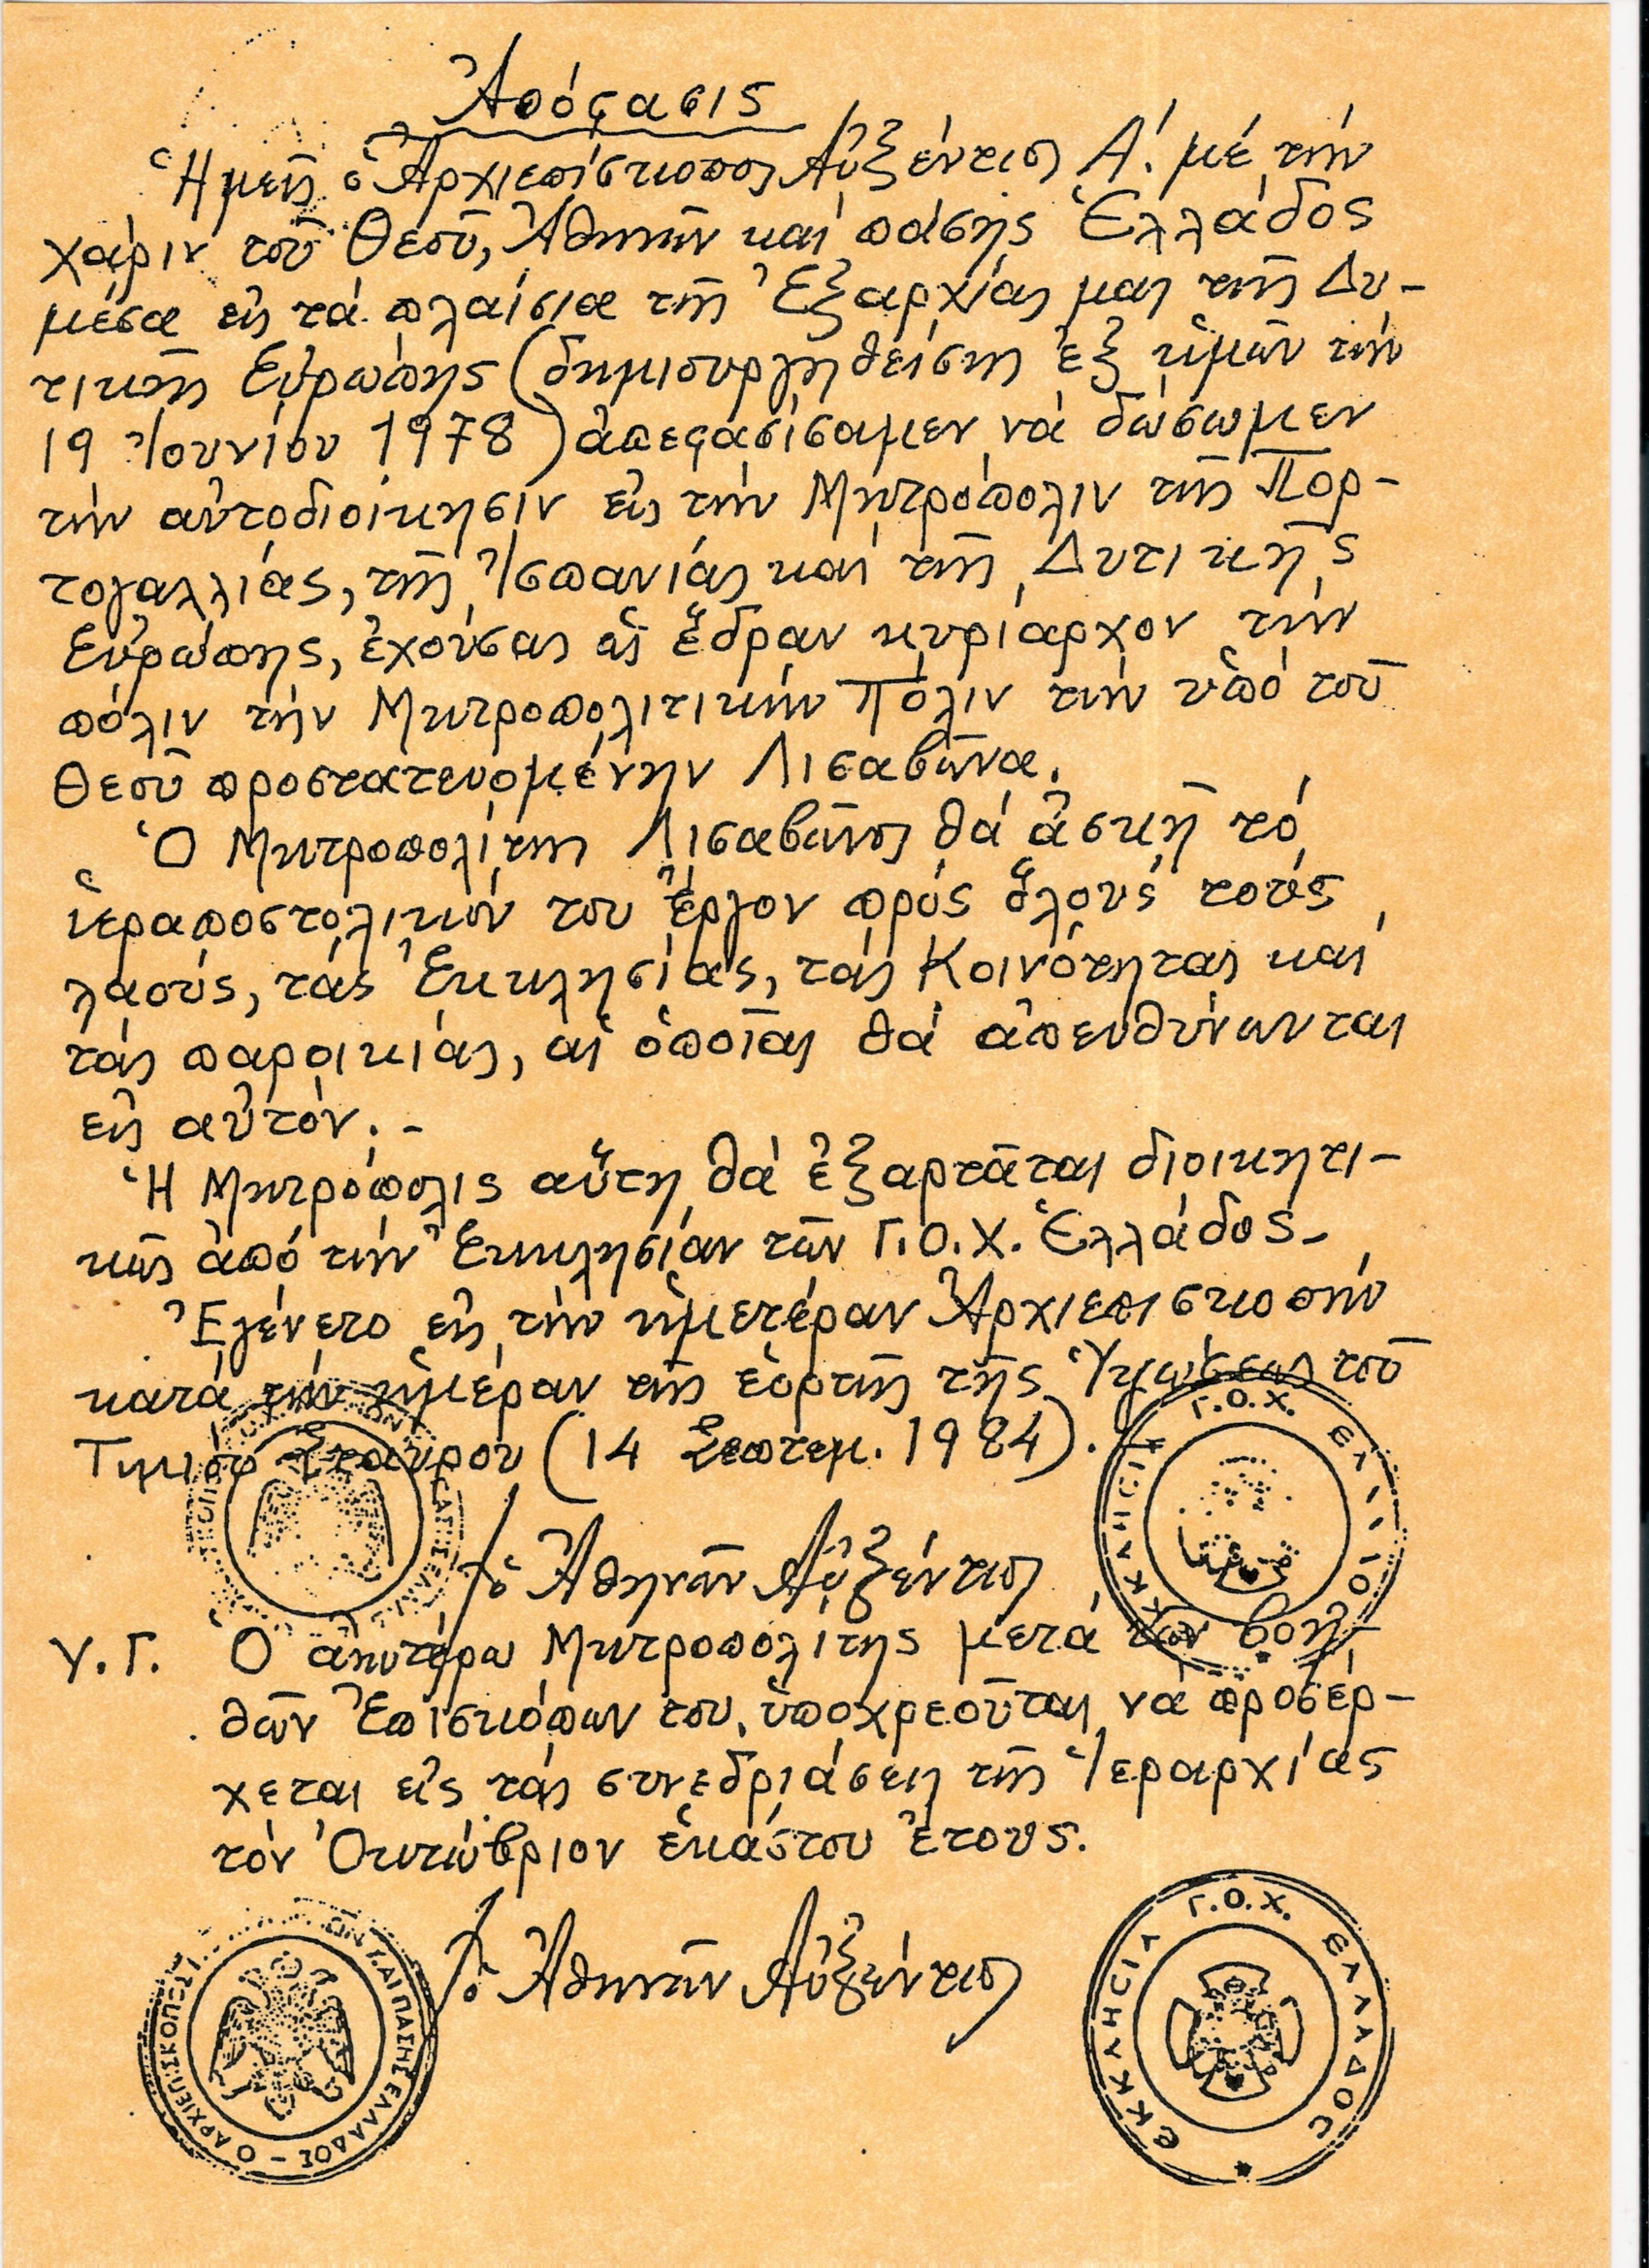 Ἀπόφασις
Ἡμεῖς ὁ Ἀρχιεπίσκοπος Αὐξέντιος Α΄. μέ τήν
χάριν τοῦ Θεοῦ, Ἀθηνῶν καί πάσης Ἑλλάδος
μέσα εἰς τά πλαίσια τῆς Ἐξαρχίας μας τῆς Δυ-
τικῆς Εὐρώπης (δημιουργηθείσης ἐξ ἡμῶν τήν
19 Ἰουνίου 1978) ἀπεφασίσαμεν νά δώσωμεν
τήν αὐτοδιοίκησιν εἰς τήν Μητρόπολιν τῆς Πορ-
τογαλλίας, τῆς Ἰσπανίας καί τῆς Δυτικῆς
Εὐρώπης, ἐχούσας ὡς ἕδραν κυρίαρχον τήν
πόλιν τήν Μητροπολιτικήν Πόλιν τήν ὑπό τοῦ
Θεοῦ προστατευομένην Λισαβῶνα.
Ὁ Μητροπολίτης Λισαβῶνος θά ἀσκῆ τό
ἱεραποστολικόν του ἔργον πρός ὅλους τούς
λαούς, τάς Ἐκκλησίας, τάς Κοινότητας καί
τάς παροικίας, αἱ ὁποῖαι θά ἀπευθύνωνται
εἰς αὐτόν.-
Ἡ Μητρόπολις αὕτη θά ἐξαρτᾶται διοικητι-
κῶς ἀπό τήν Ἐκκλησίαν τῶν Γ.Ο.Χ. Ἑλλάδος-
Ἐγένετο εἰς τήν ἡμετέραν Ἀρχιεπισκοπήν
κατά τήν ἡμέραν τῆς ἑορτῆς τῆς Ὑψώσεως τοῦ
Τιμίου Σταυροῦ (14 Σεπτεμ. 1984).
Γ.Ο.Χ.
† ὁ Ἀθηνῶν Αὐξέντιος
Υ.Γ. Ὁ ἀνωτέρω Μητροπολίτης μετά τῶν βοη-
θῶν Ἐπισκόπων του, ὑποχρεοῦται νά προσέρ-
χεται εἰς τάς συνεδριάσεις τῆς Ἱεραρχίας
τόν Ὀκτώβριον ἑκάστου ἔτους.
† ὁ Ἀθηνῶν Αὐξέντιος
Ο ΑΡΧΙΕΠΙΣΚΟΠΟΣ ΠΑΣΗΣ ΕΛΛΑΔΟΣ
ΕΚΚΛΗΣΙΑ Γ.Ο.Χ. ΕΛΛΑΔΟC